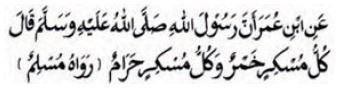 عَنِ ابْنِ عُمَرَ أَنَّ رَسُوْلَ اللهِ صَلَّى اللهُ عَلَيْهِ وَسَلَّمَ قَالَ
كُلُّ مُسْكِرٍ خَمْرٌ وَكُلُّ مُسْكِرٍ حَرَامٌ (رَوَاهُ مُسْلِمٌ)